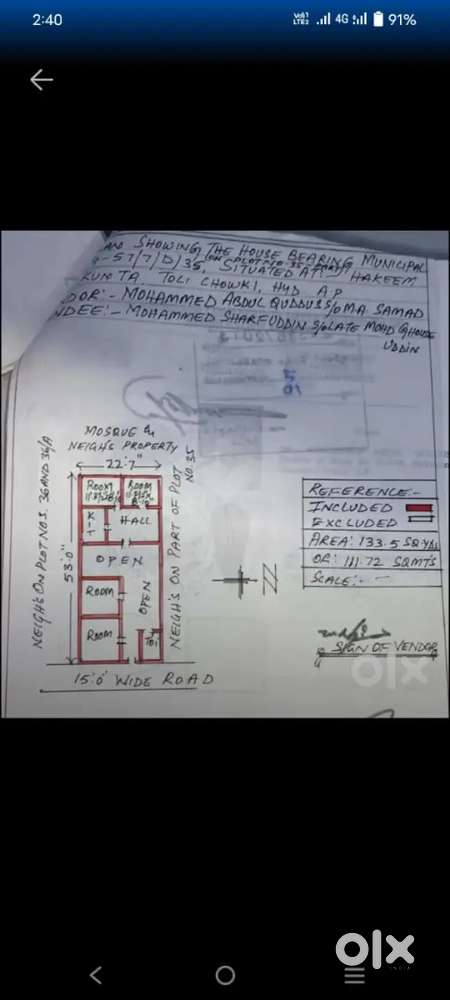 2:40
4G
91%
AN SHOWING THE HOUSE BEARING MUNICIPAL
-57/7/D/35, SITUATED AT:- HAKEEM
KUNTA TOLI CHOWKI, HYD A.P
DOR:- MOHAMMED ABDUL QUDDUS S/O M.A. SAMAD
NDEE:- MOHAMMED SHARFUDDIN S/O LATE MOHD GHOUSE
UDDIN
MOSQUE &
NEIGH'S PROPERTY
22'-7"
NEIGH'S ON PLOT NOS. 36 AND 36/A
53'-0"
ROOM
ROOM
KIT
HALL
OPEN
ROOM
OPEN
ROOM
TOI
NEIGH'S ON PART OF PLOT
NO. 35
15'-0" WIDE ROAD
N
REFERENCE:-
INCLUDED
EXCLUDED
AREA: 133.5 SQ.YDS
OR: 111.72 SQMTS
SCALE:-
SIGN OF VENDOR
olx
olx
INDIA